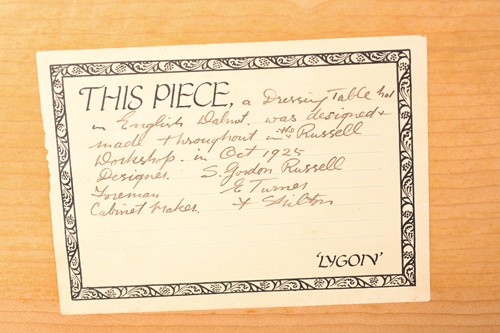 THIS PIECE, a Dressing Table
in English Walnut. was designed &
made throughout in the Russell
Workshop. in Oct 1925
Designer. S. Gordon Russell
Foreman E Turner
Cabinet Maker. F Shilton
'LYGON'